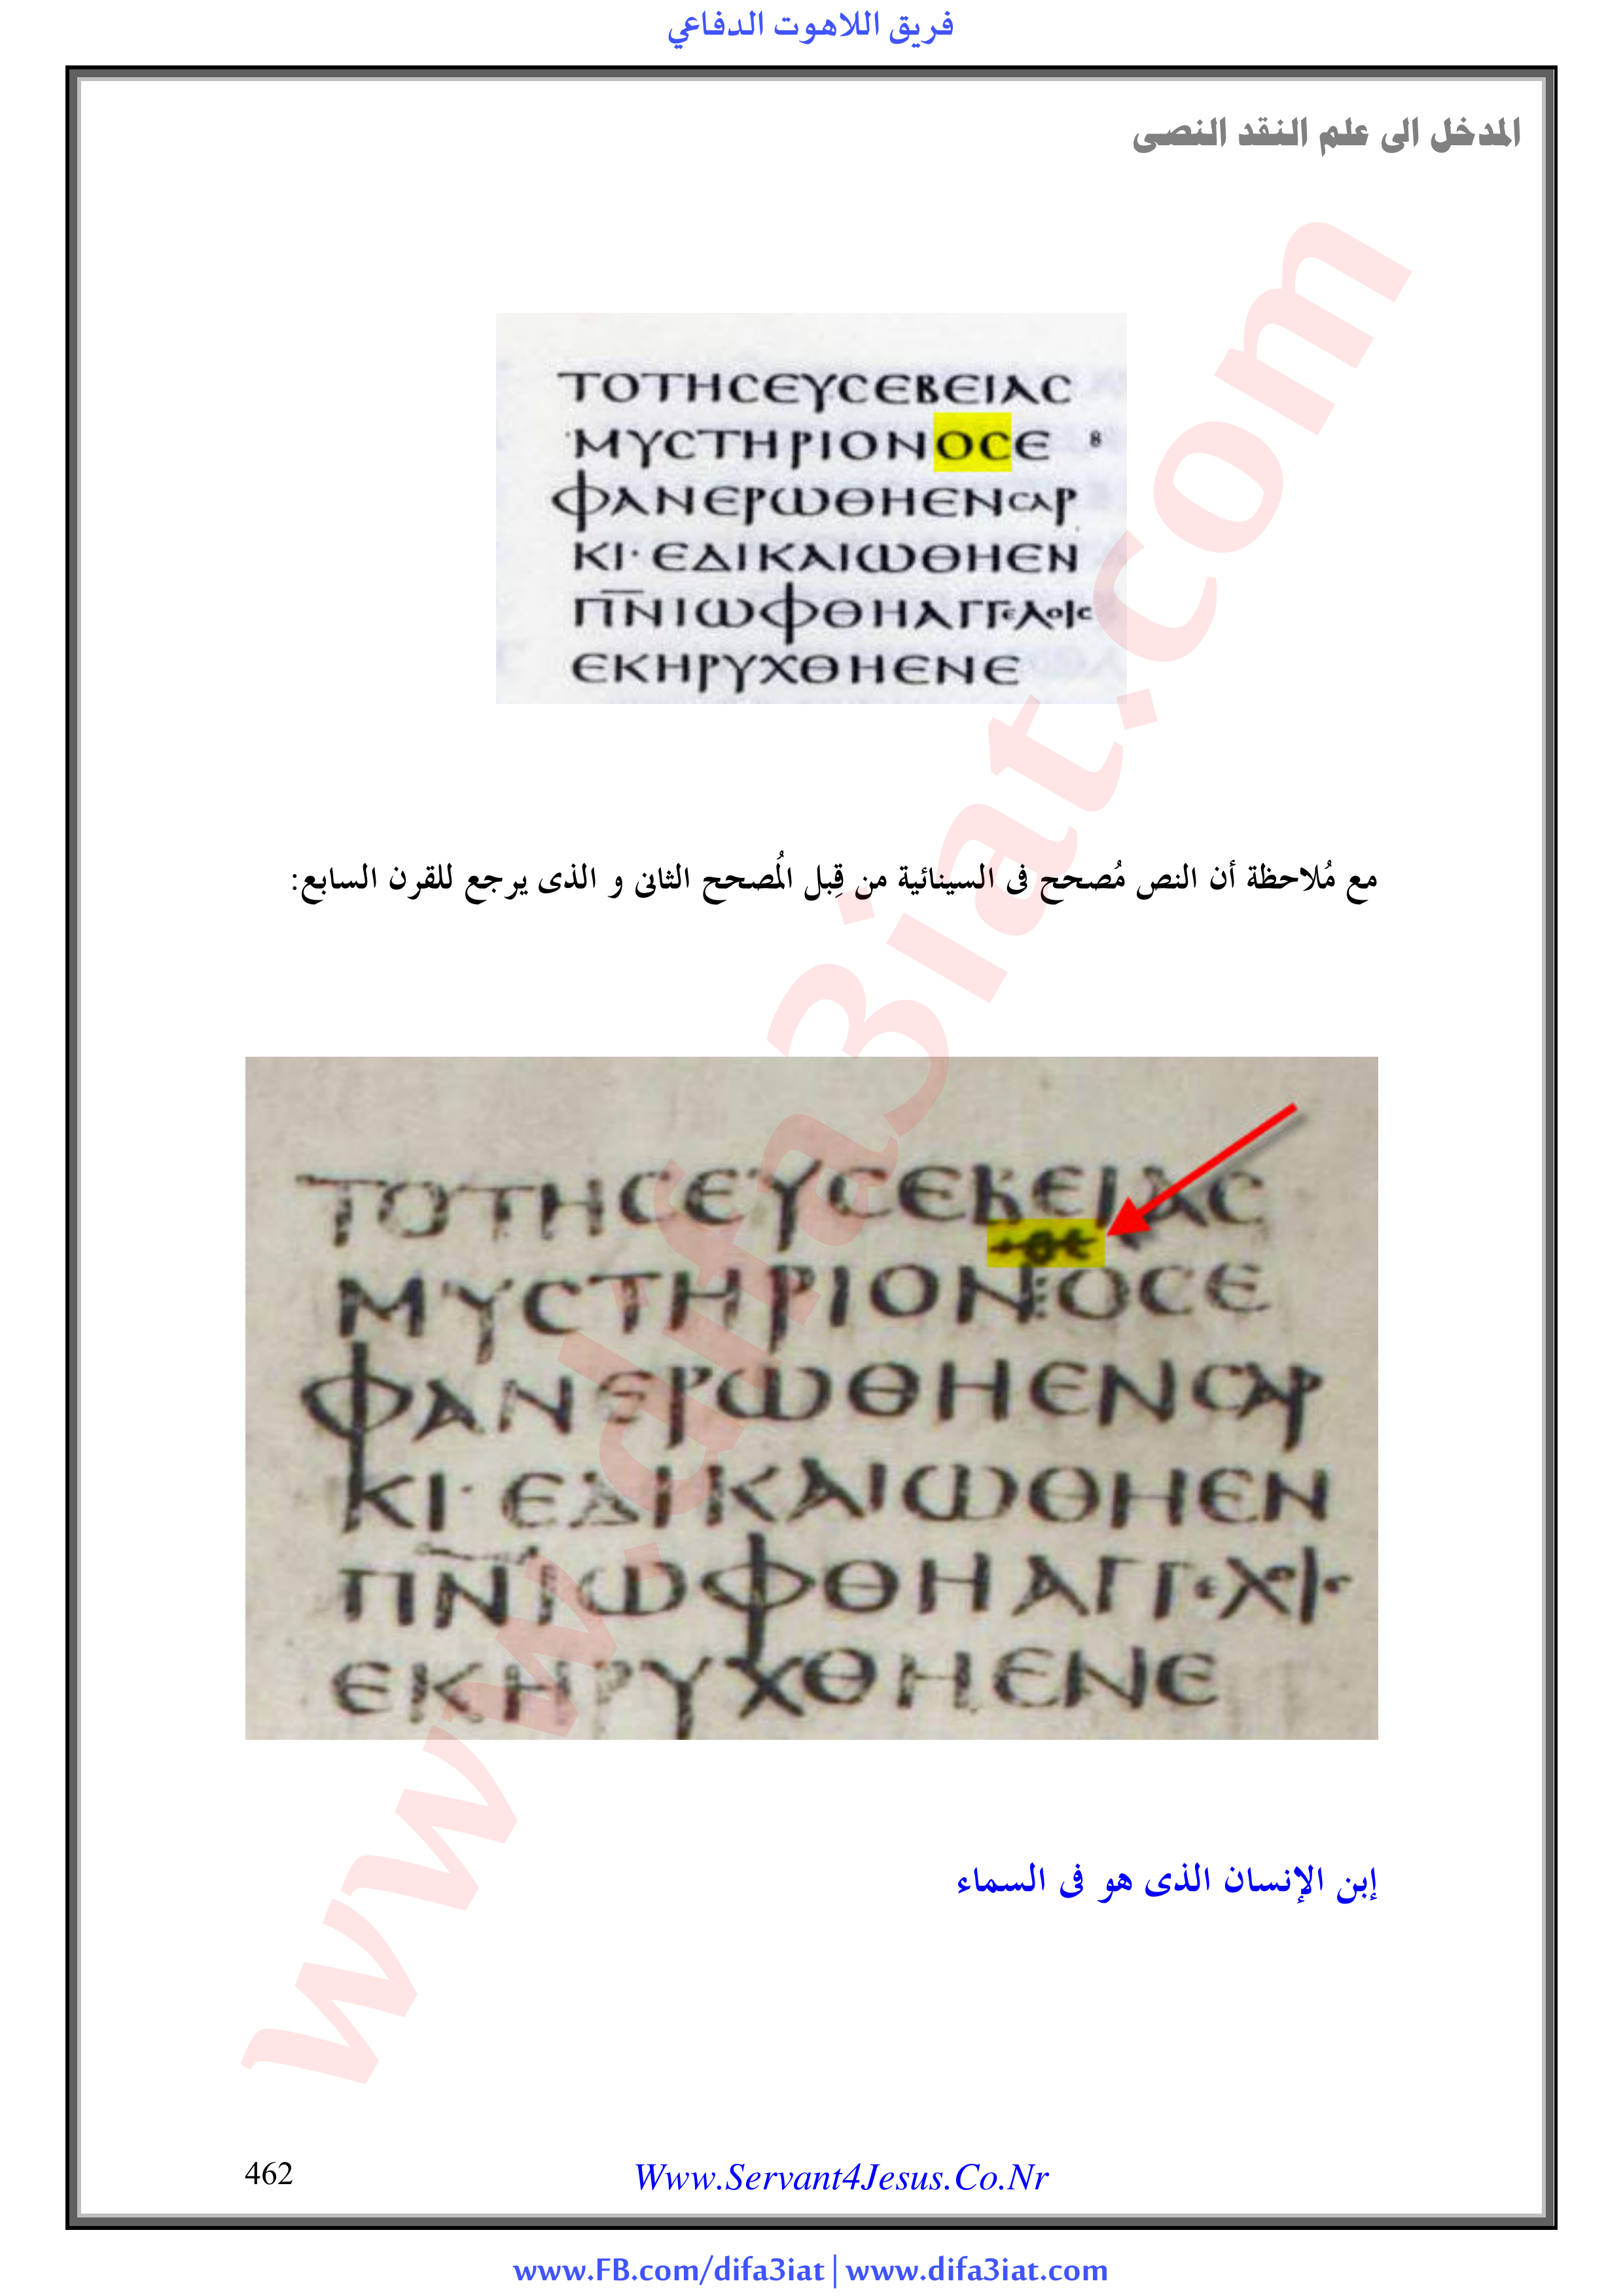 فريق اللاهوت الدفاعي
المدخل الى علم النقد النصى
ΤΟΤΗCΕΥCΕΒΕΙΑC
ΜΥCΤΗΡΙΟΝΟCΕ 8
ΦΑΝΕΡΩΘΗΕΝCΑΡ
ΚΙ· ΕΔΙΚΑΙΩΘΗΕΝ
Π̅Ν̅ΙΩΦΘΗΑΓΓΕΛΟΙC
ΕΚΗΡΥΧΘΗΕΝΕ
مع مُلاحظة أن النص مُصحح فى السينائية من قِبل المُصحح الثانى و الذى يرجع للقرن السابع:
ΤΟΤΗCΕΥCΕΒΕΙΑC
θε
ΜΥCΤΗΡΙΟΝΟCΕ
ΦΑΝΕΡΩΘΗΕΝCΑΡ
ΚΙ· ΕΔΙΚΑΙΩΘΗΕΝ
Π̅Ν̅ΙΩΦΘΗΑΓΓΕΛΟΙC
ΕΚΗΡΥΧΘΗΕΝΕ
إبن الإنسان الذى هو فى السماء
462
Www.Servant4Jesus.Co.Nr
www.FB.com/difa3iat | www.difa3iat.com
www.difa3iat.com